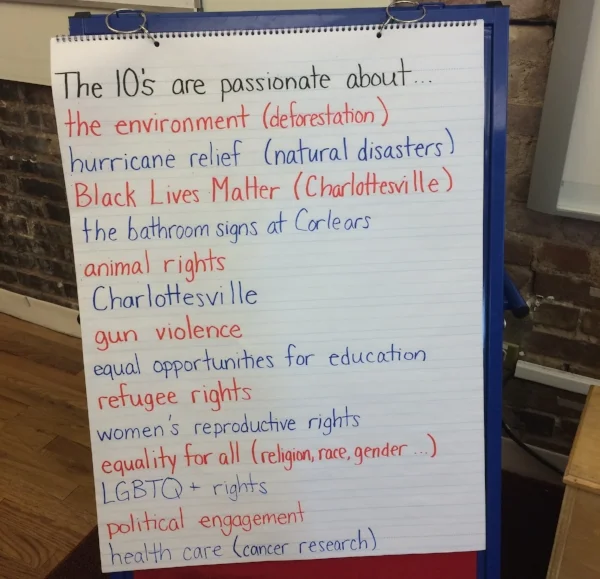 The 10's are passionate about...
the environment (deforestation)
hurricane relief (natural disasters)
Black Lives Matter (Charlottesville)
the bathroom signs at Corlears
animal rights
Charlottesville
gun violence
equal opportunities for education
refugee rights
women's reproductive rights
equality for all (religion, race, gender ...)
LGBTQ+ rights
political engagement
health care (cancer research)